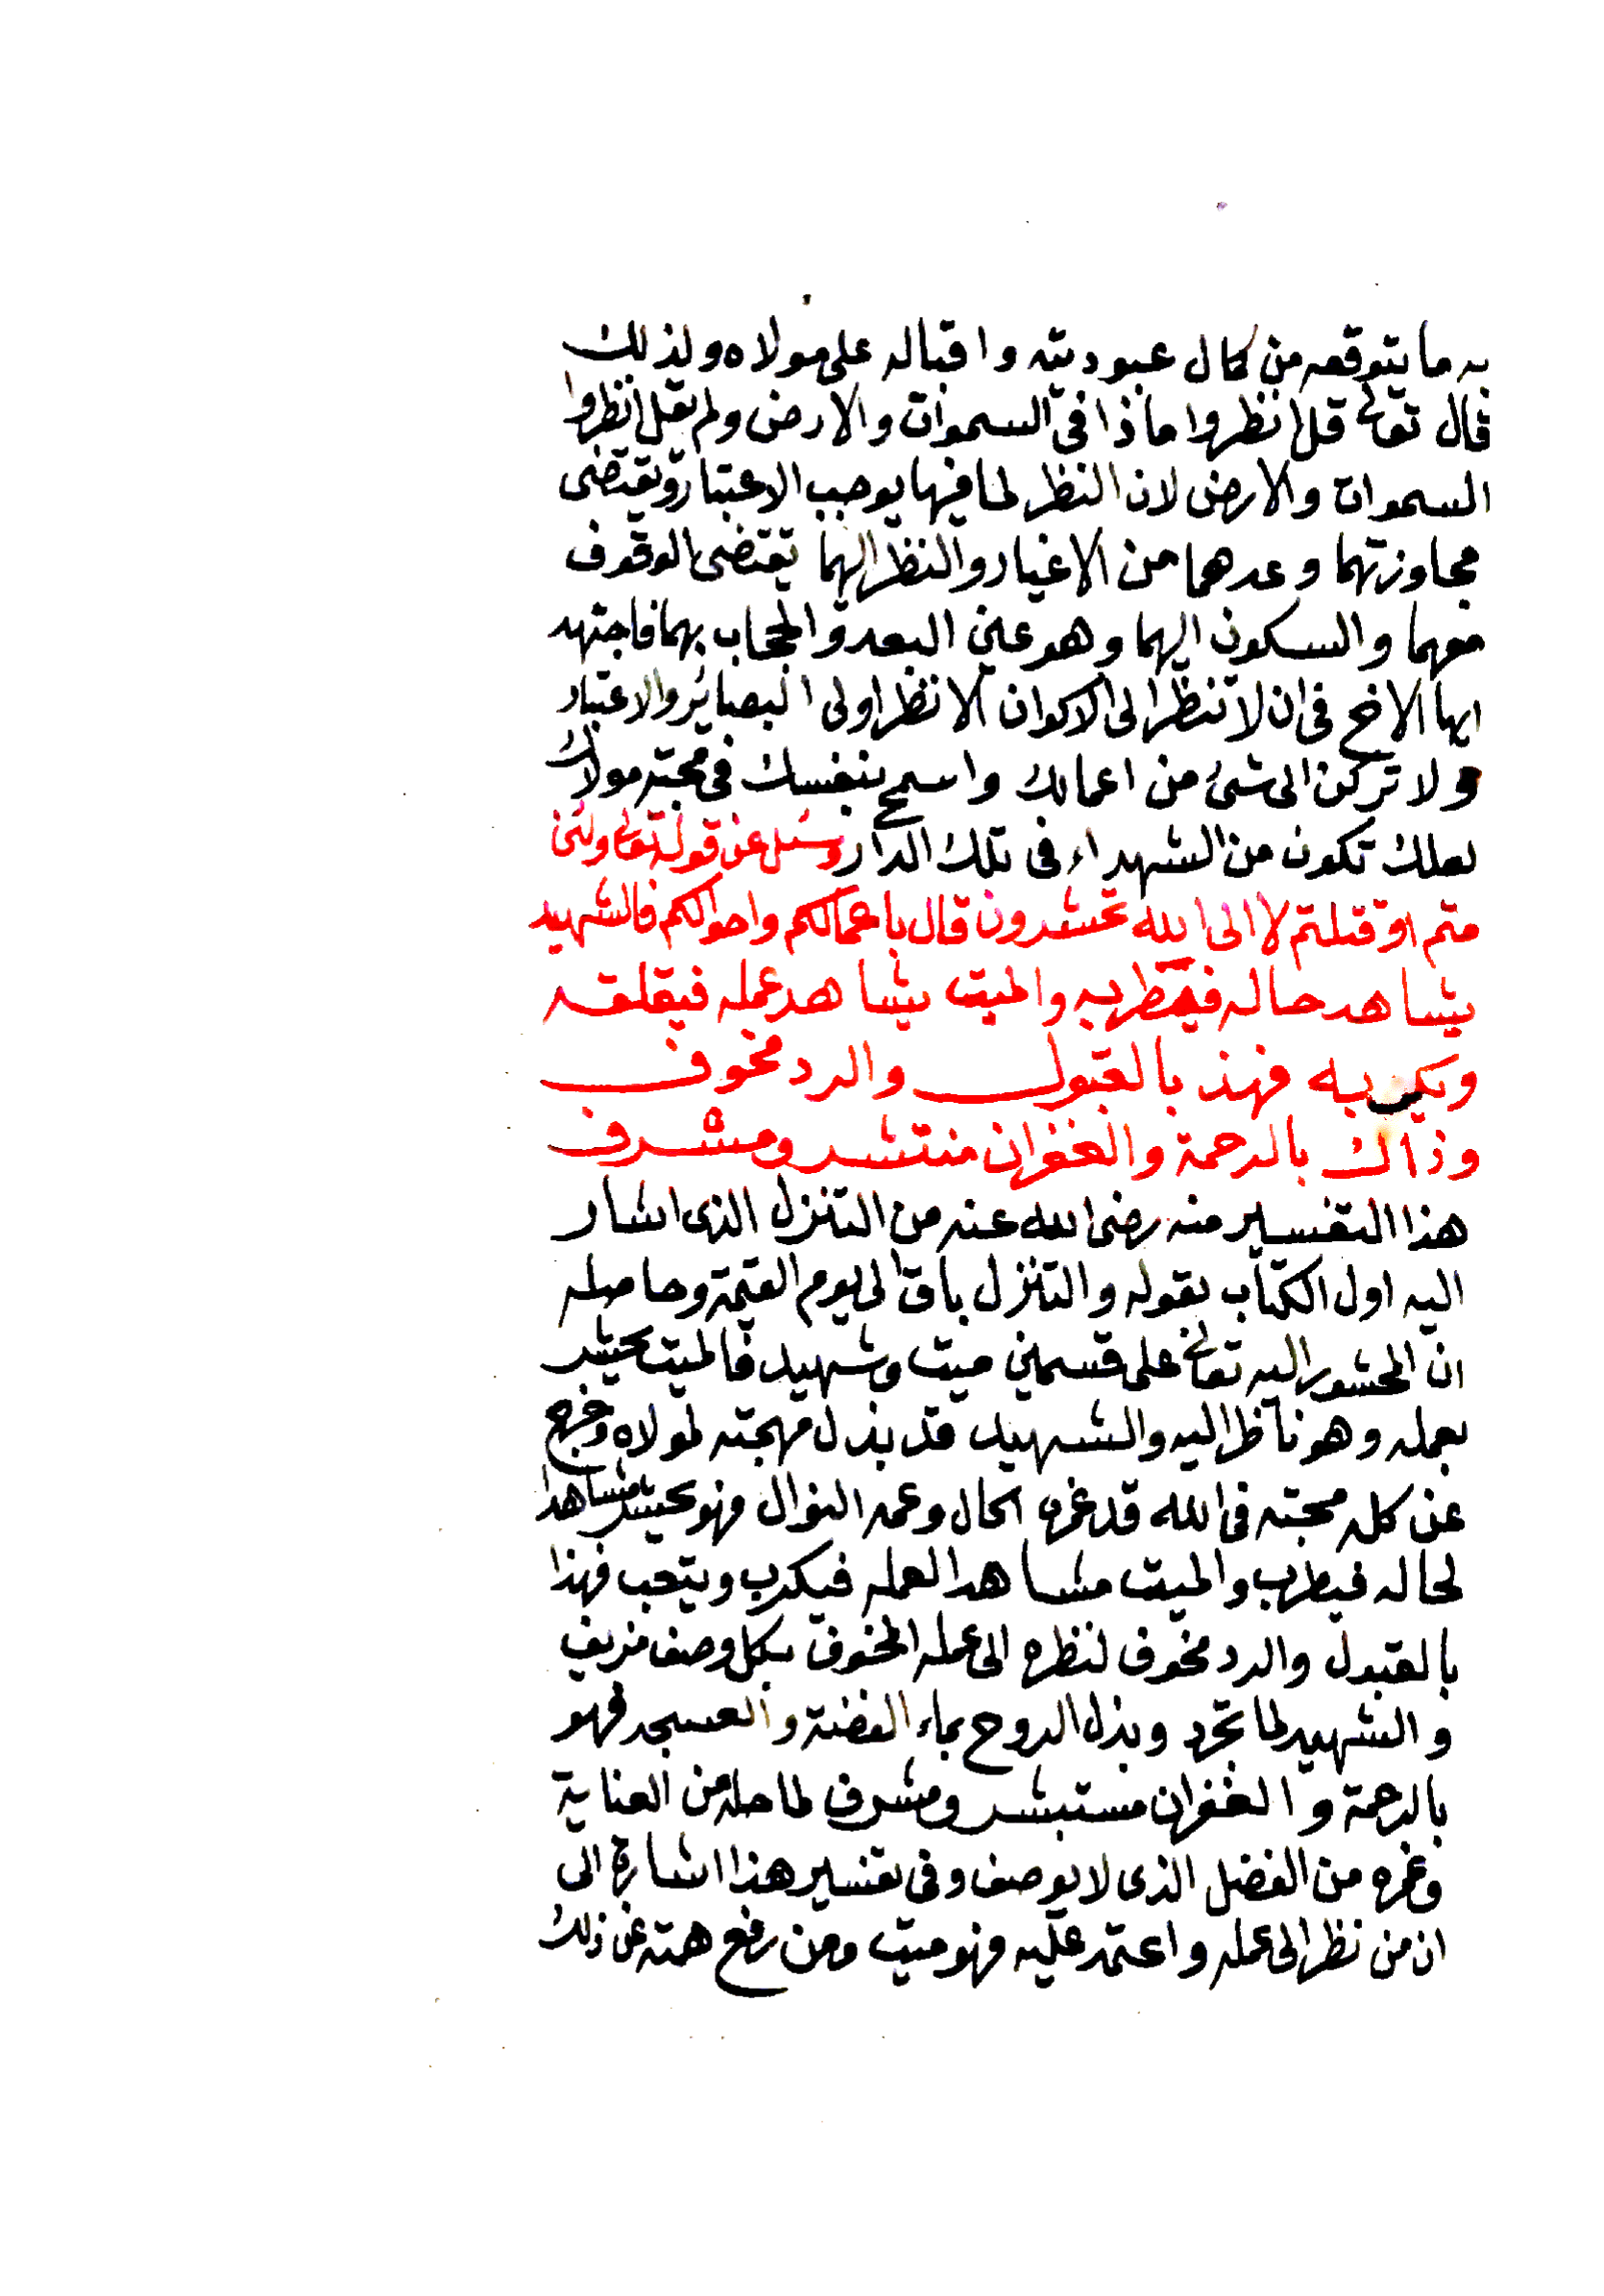 به ما يتوقعه من كمال عبوديته واقباله على مولاه ولذلك
قال تعالى قل انظروا ماذا في السموات والارض ولم يقل انظروا
السموات والارض لان النظر لما فيها يوجب الاعتبار ويقتضى
مجاوزتهما وعدهما من الاغيار والنظر اليهما يقتضى الوقوف
معهما والسكون اليهما وهو عين البعد والحجاب بهما فاجتهد
ايها الاخ في ان لا تنظر الى الاكوان الا نظر اولى البصائر والاعتبار
ولا تركن الى شئ من اعمالك واسمح بنفسك في محبته مولاك
لعلك تكون من الشهداء في تلك الدار وسئل عن قوله تعالى ولئن
متم او قتلتم لا الى الله تحشرون قال باعمالكم واحوالكم فالشهيد
يشاهد حاله فيطربه والميت يشاهد عمله فيقلقه
ويكربه فهذ بالقبول والرد مخوف
وذاك بالرحمة والغفران منتشر ومشرف
هذا التفسير منه رضى الله عنه من التنزل الذى اشار
اليه اول الكتاب بقوله والتنزل باق الى يوم القيمة وحاصله
ان المحشور اليه تعالى على قسمين ميت وشهيد فالميت يحشر
بعمله وهو ناظر اليه والشهيد قد بذل مهجته لمولاه وخرج
عن كله محبته في الله قد غمره الحال وعمه النوال فهو يحشر مشاهدا
لحاله فيطرب والميت مشاهدا لعمله فيكرب ويتعب فهذا
بالقبول والرد مخوف لنظره الى عمله المخوف بكل وصف مزيف
والشهيد لما تجرد وبذل الروح بماء الفضة والعسجد فهو
بالرحمة والغفران مستبشر ومشرف لما حله من العناية
وغمره من الفضل الذى لا يوصف وفى تفسير هذا اشارة الى
ان من نظر الى عمله واعتمد عليه فهو ميت ومن رفع همته عن ذلك